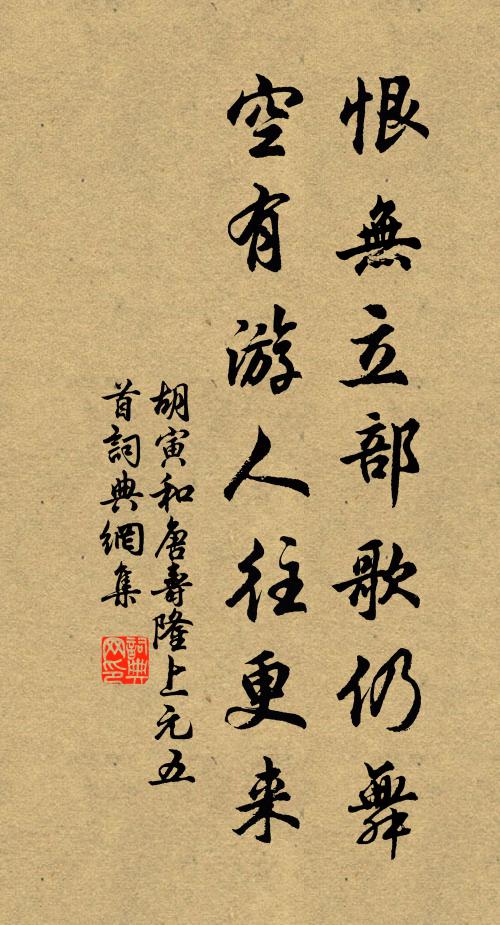 恨無立部歌仍舞
空有游人往更来
胡寅和唐壽隆上元五
首詞典網集
詞典网印